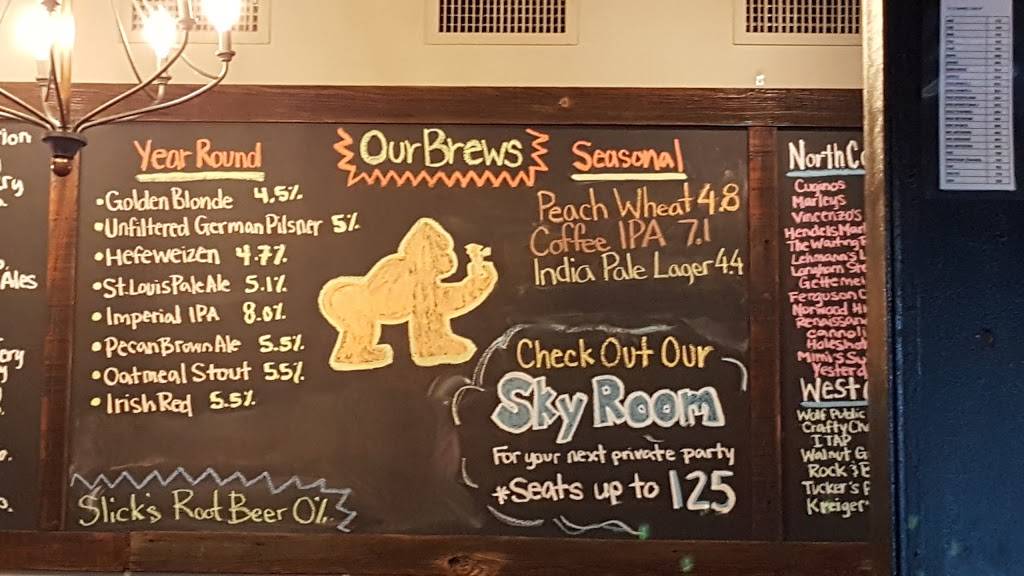 ion
ry
Ales
ery
Year Round
• Golden Blonde 4.5%
• Unfiltered German Pilsner 5%
• Hefeweizen 4.7%
• St. Louis Pale Ale 5.1%
• Imperial IPA 8.0%
• Pecan Brown Ale 5.5%
• Oatmeal Stout 5.5%
• Irish Red 5.5%
Slick's Root Beer 0%
Our Brews
Seasonal
Peach Wheat 4.8
Coffee IPA 7.1
India Pale Lager 4.4
Check Out Our
Sky Room
For your next private party
*Seats up to 125
North Co
Cuginos
Marleys
Vincenzo's
Hendels Mar
The Waiting
Lehmann's L
Langhorn Str
Getteme
Ferguson
Norwood H
Renaissan
Cannoli
Halesha
Mimi's Su
Yesterd
West
Wolf Public
Crafty Ch
ITAP
Walnut G
Rock & B
Tucker's P
Kreiger